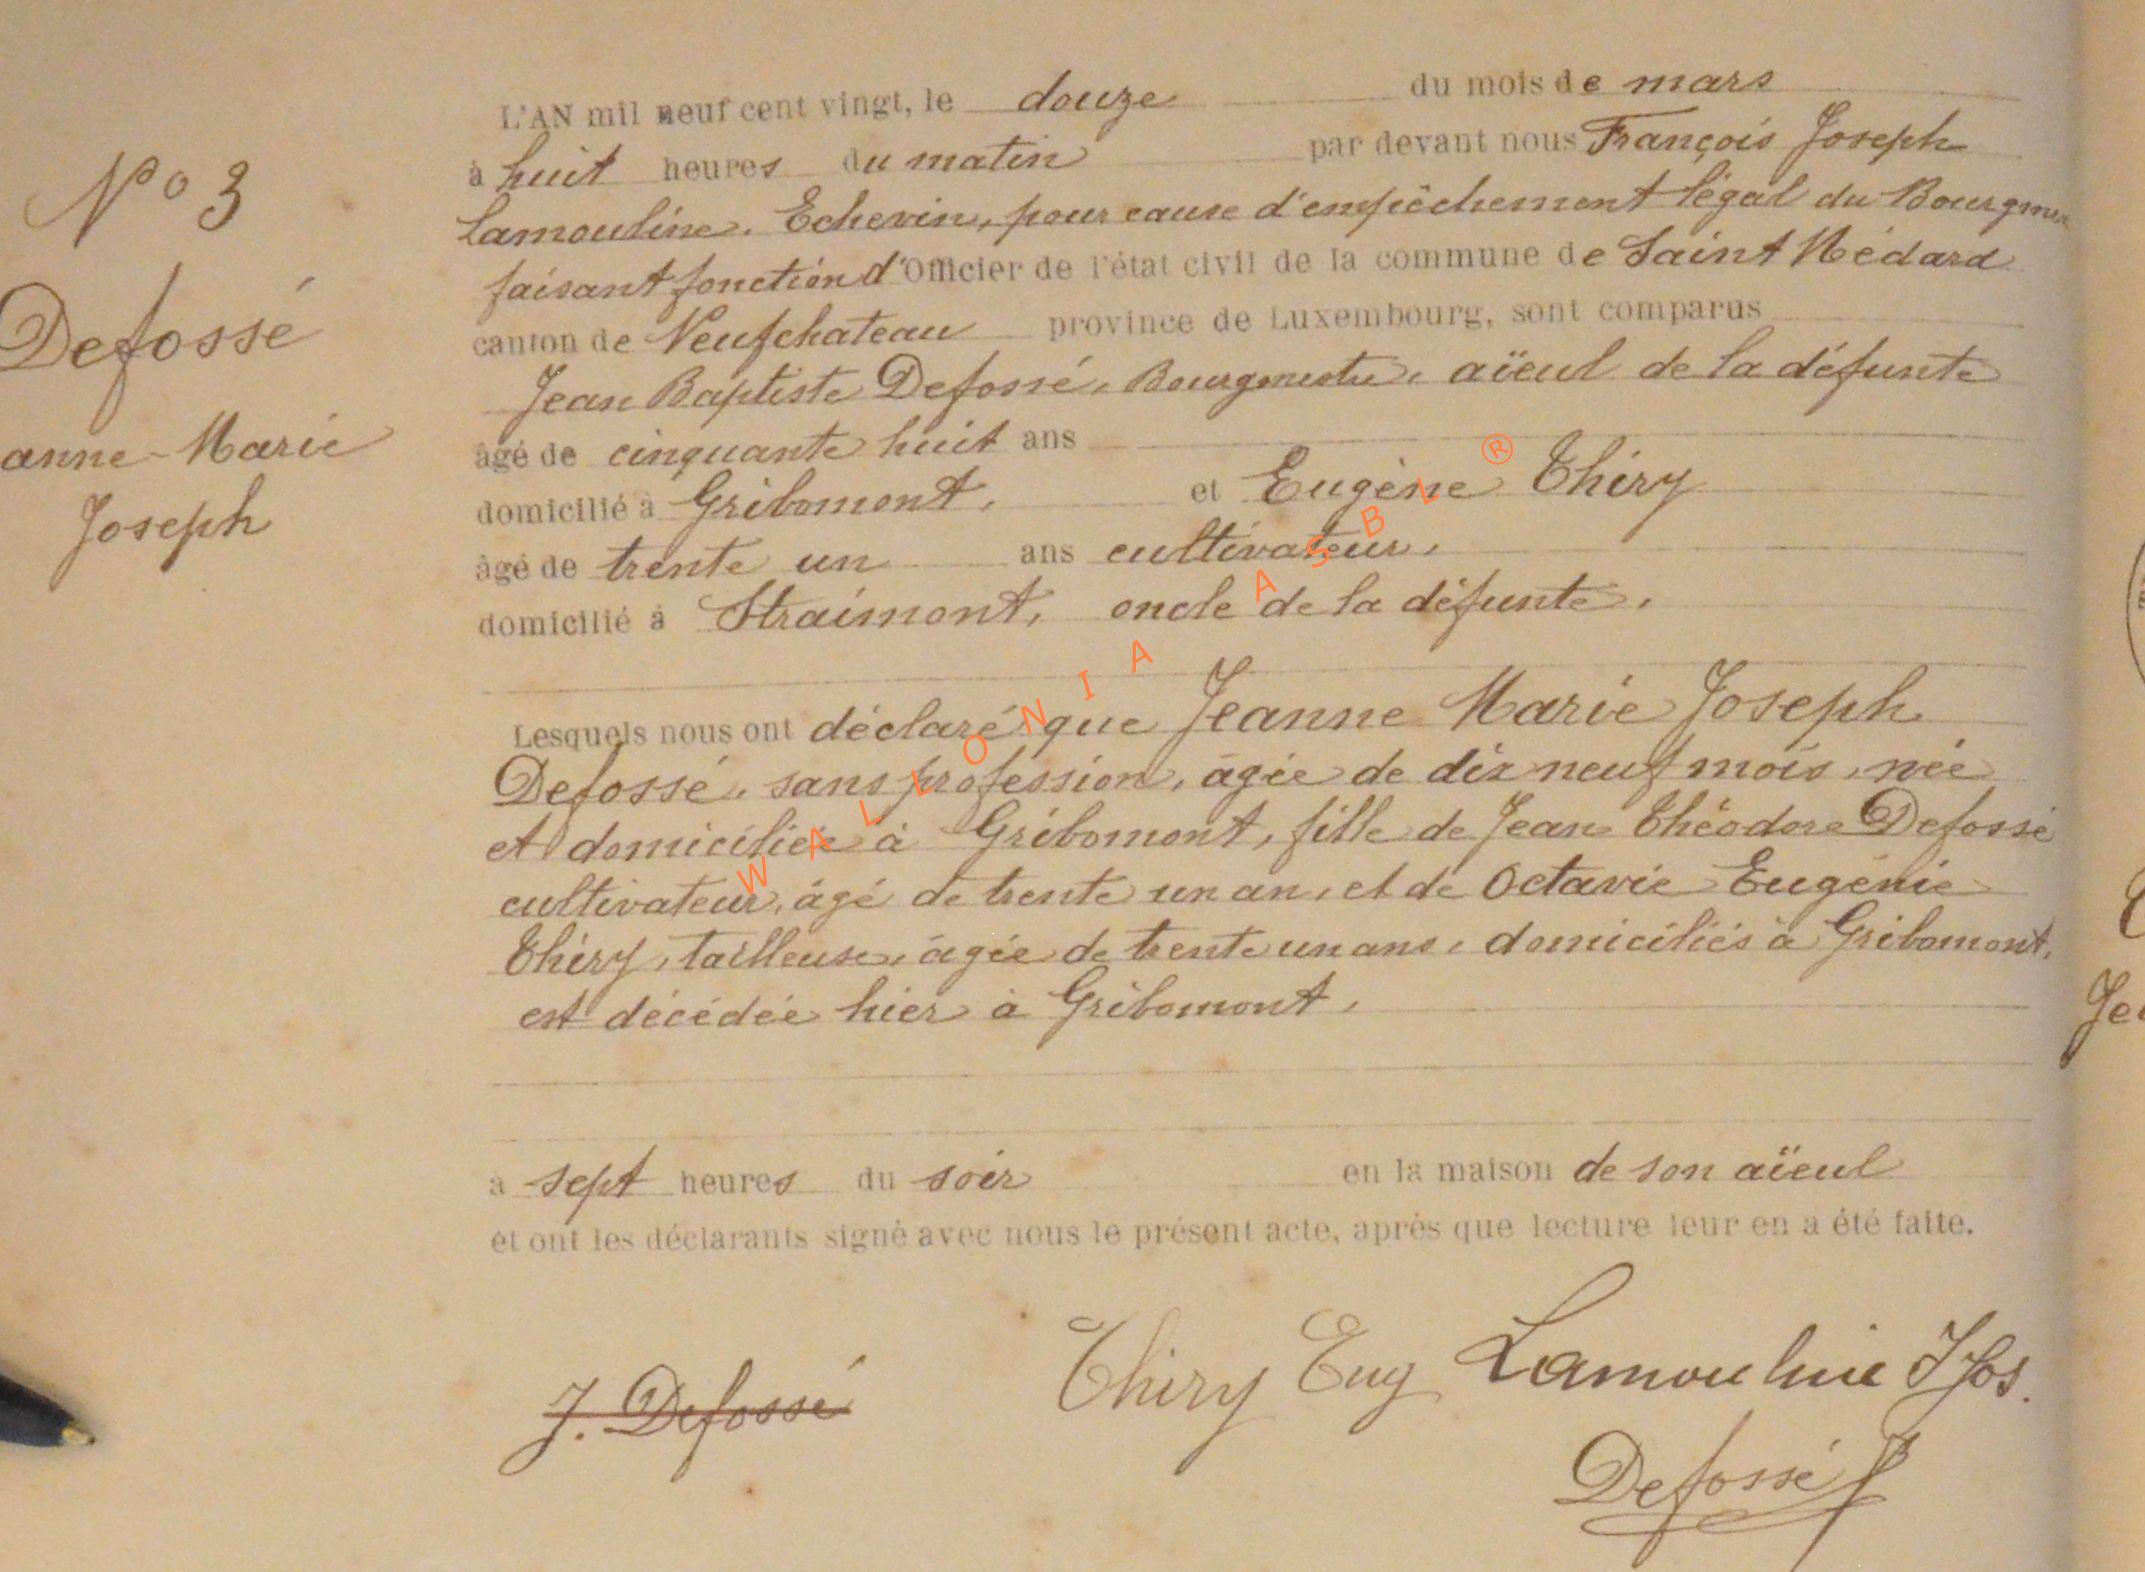 N° 3
Defossé
anne-Marie
Joseph
L'AN mil neuf cent vingt, le douze du mois de mars
à huit heures du matin par devant nous François Joseph
Lamouline, Echevin, pour cause d'empêchement légal du Bourgme
faisant fonction d'Officier de l'état civil de la commune de Saint Médard
canton de Neufchateau province de Luxembourg, sont comparus
Jean Baptiste Defossé, Bourgmestre, aïeul de la défunte
âgé de cinquante huit ans
domicilié à Gribomont, et Eugène Thiry
âgé de trente un ans cultivateur,
domicilié à Straimont, oncle de la défunte,
Lesquels nous ont déclaré que Jeanne Marie Joseph
Defossé, sans profession, âgée de dix neuf mois, née
et domiciliée à Gribomont, fille de Jean Théodore Defossé
cultivateur, âgé de trente un an, et de Octavie Eugénie
Thiry, tailleuse, âgée de trente un ans, domiciliés à Gribomont,
est décédée hier à Gribomont,
à sept heures du soir en la maison de son aïeul
et ont les déclarants signé avec nous le présent acte, après que lecture leur en a été faite.
J. Defossé
Thiry Eug Lamouline F Jos.
Defossé J
WALLONIA ASBL ®
Je